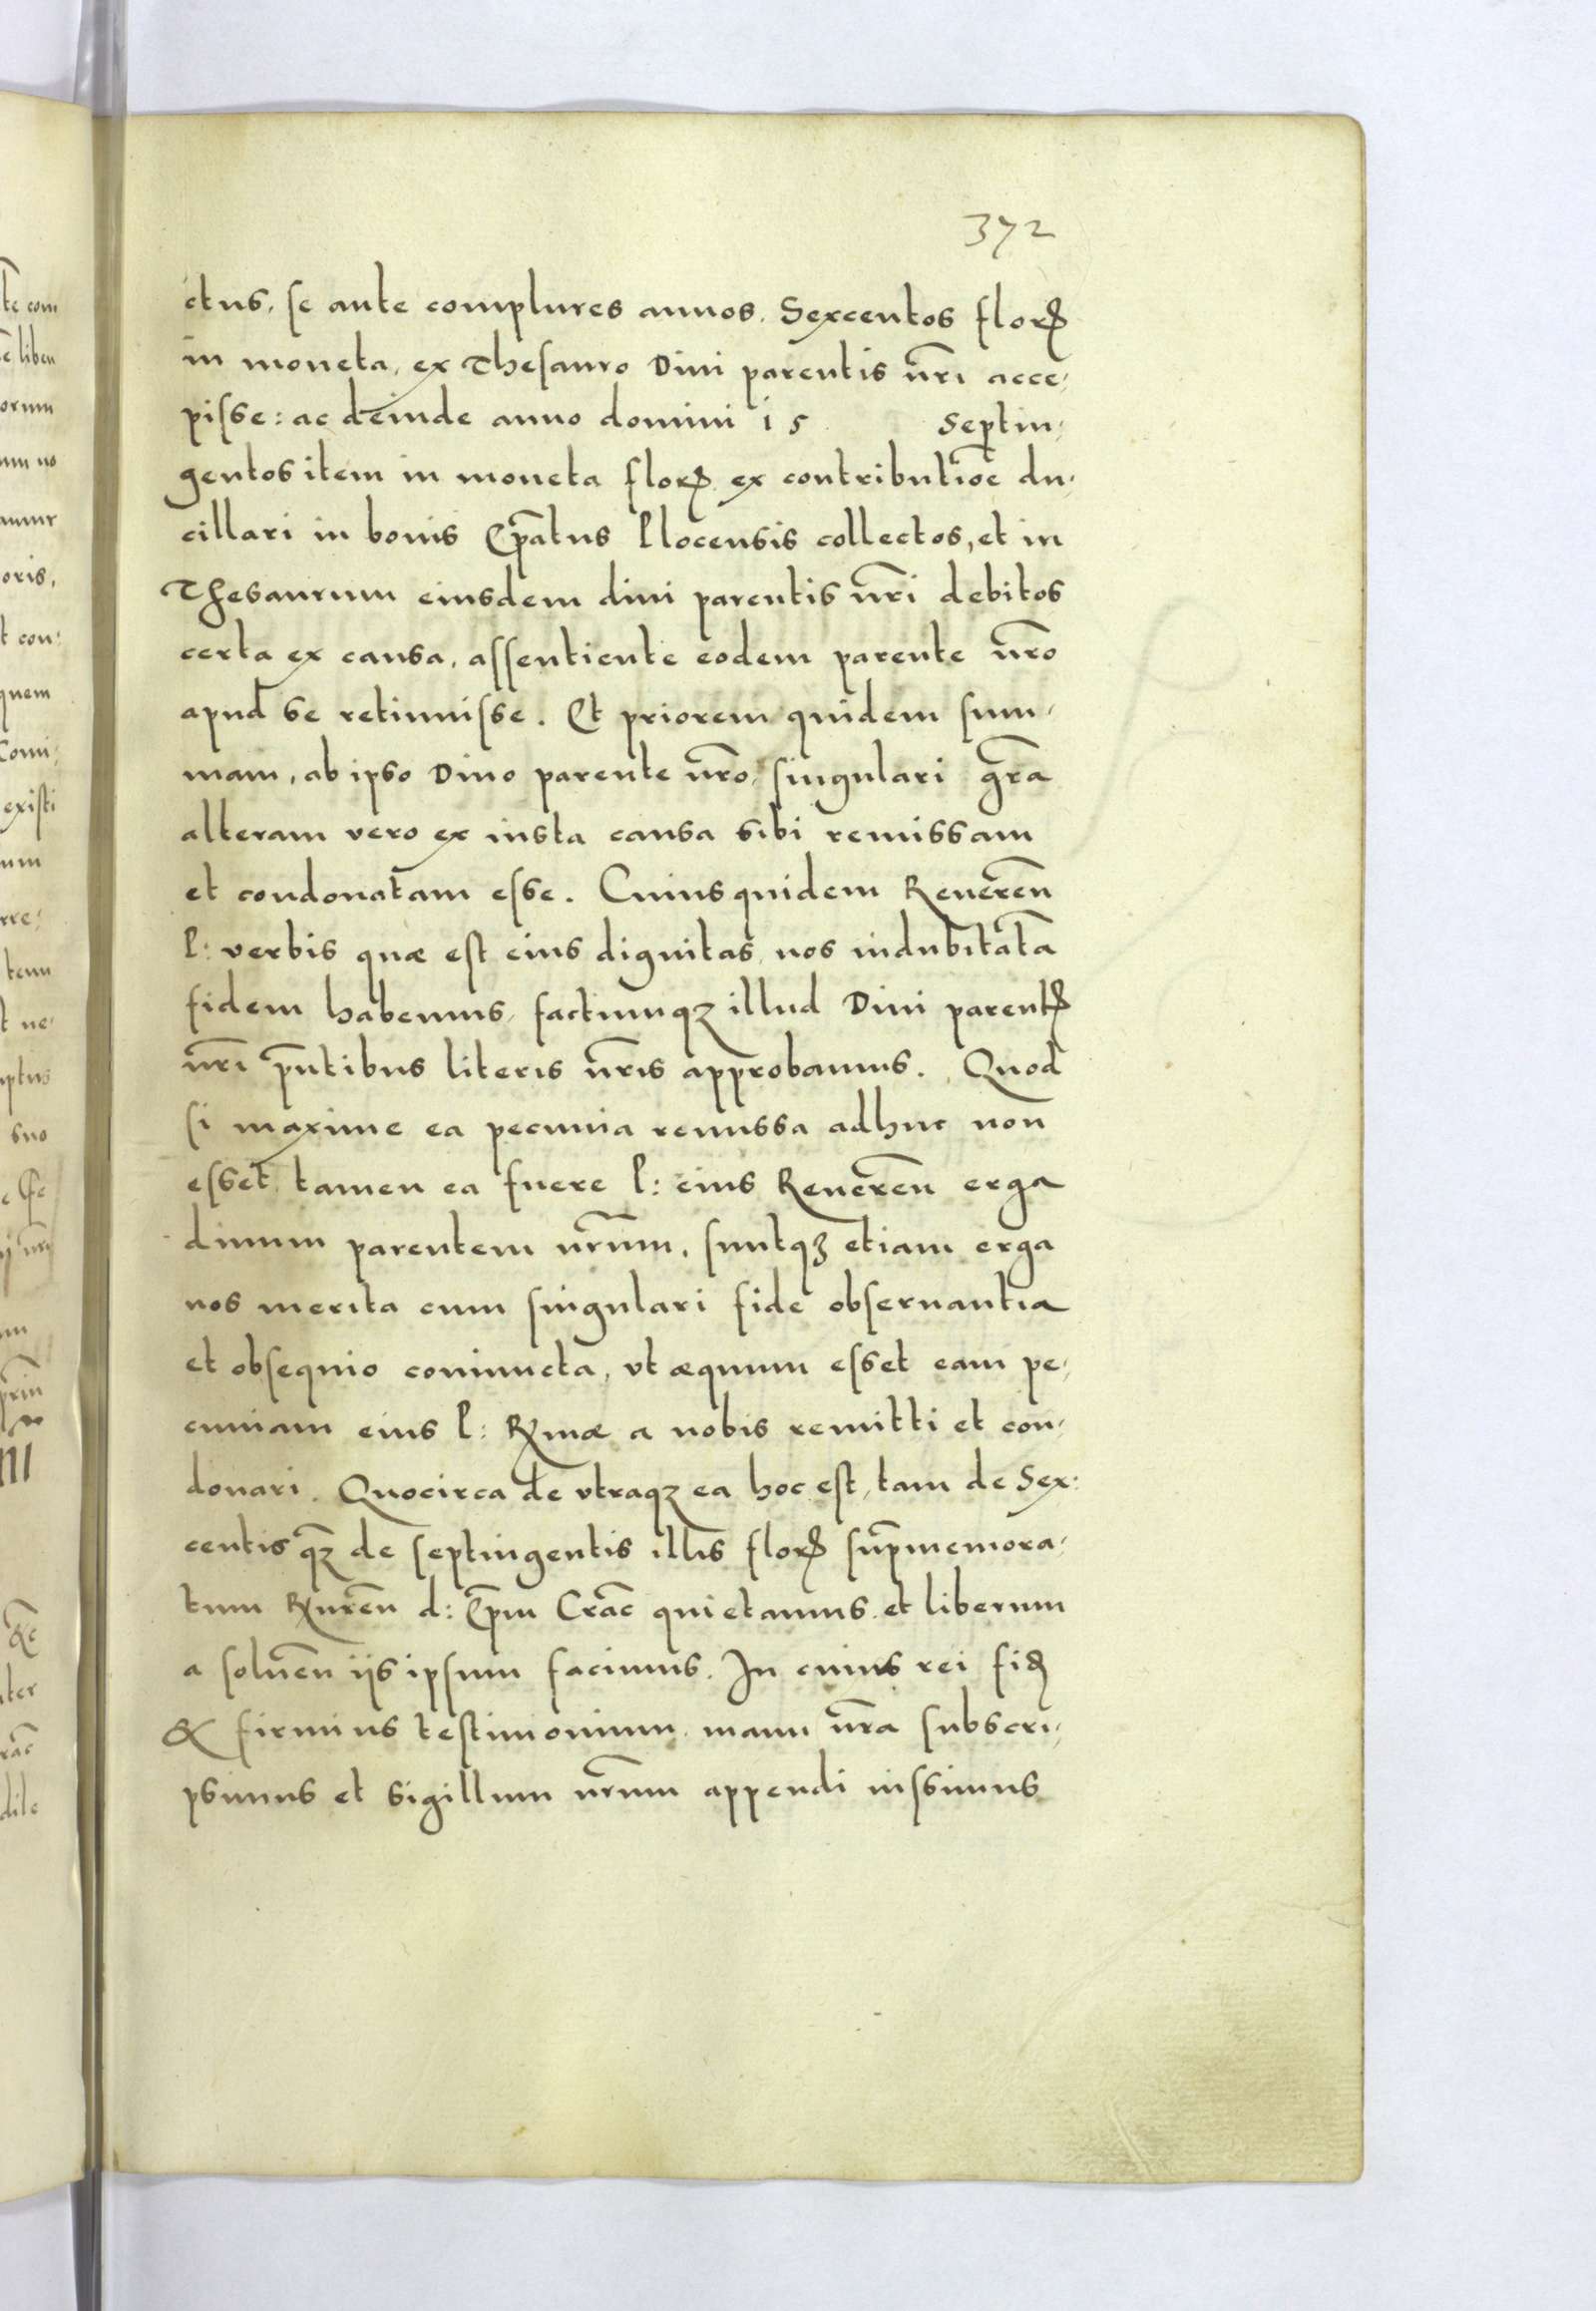 372
ctus, se ante complures annos. Sexcentos floꝝ
in moneta, ex Thesauro Diui parentis nr̄i acce,
pisse: ac deinde anno domini 15 Septin,
gentos item in moneta floꝝ ex contributiōe du,
cillari in bonis Ep̄atus Plocensis collectos, et in
Thesaurum eiusdem diui parentis nr̄i debitos
certa ex causa, assentiente eodem parente nr̄o
apud se retinuisse. Et priorem quidem sum,
mam, ab ipso Diuo parente nr̄o, singulari gr̄a
alteram vero ex iusta causa sibi remissam
et condonatam esse. Cuius quidem Reuerēn
P: verbis quæ est eius dignitas, nos indubitatā
fidem habemus, factumqȝ illud Diui parentꝭ
nr̄i pn̄tibus literis nr̄is approbamus. Quod
si maxime ea pecunia remissa adhuc non
esset, tamen ea fuere P: eius Reuerēn erga
diuum parentem nr̄um, suntqȝ etiam erga
nos merita cum singulari fide obseruantia
et obsequio coniuncta, vt æquum esset eam pe,
cuniam eius P: Rx̄mæ a nobis remitti et con,
donari. Quocirca de vtraqȝ ea hoc est, tam de Sex:
centis qȝ̄ de septingentis illis floꝝ sup̄memora,
tum Rx̄urēn d: Ep̄m Crāc quietamus et liberum
a soluēn iis ipsum facimus. In cuius rei fiꝺ
& firmius testimonium, manu nr̄a subscri,
psimus et sigillum nr̄um appendi iussimus